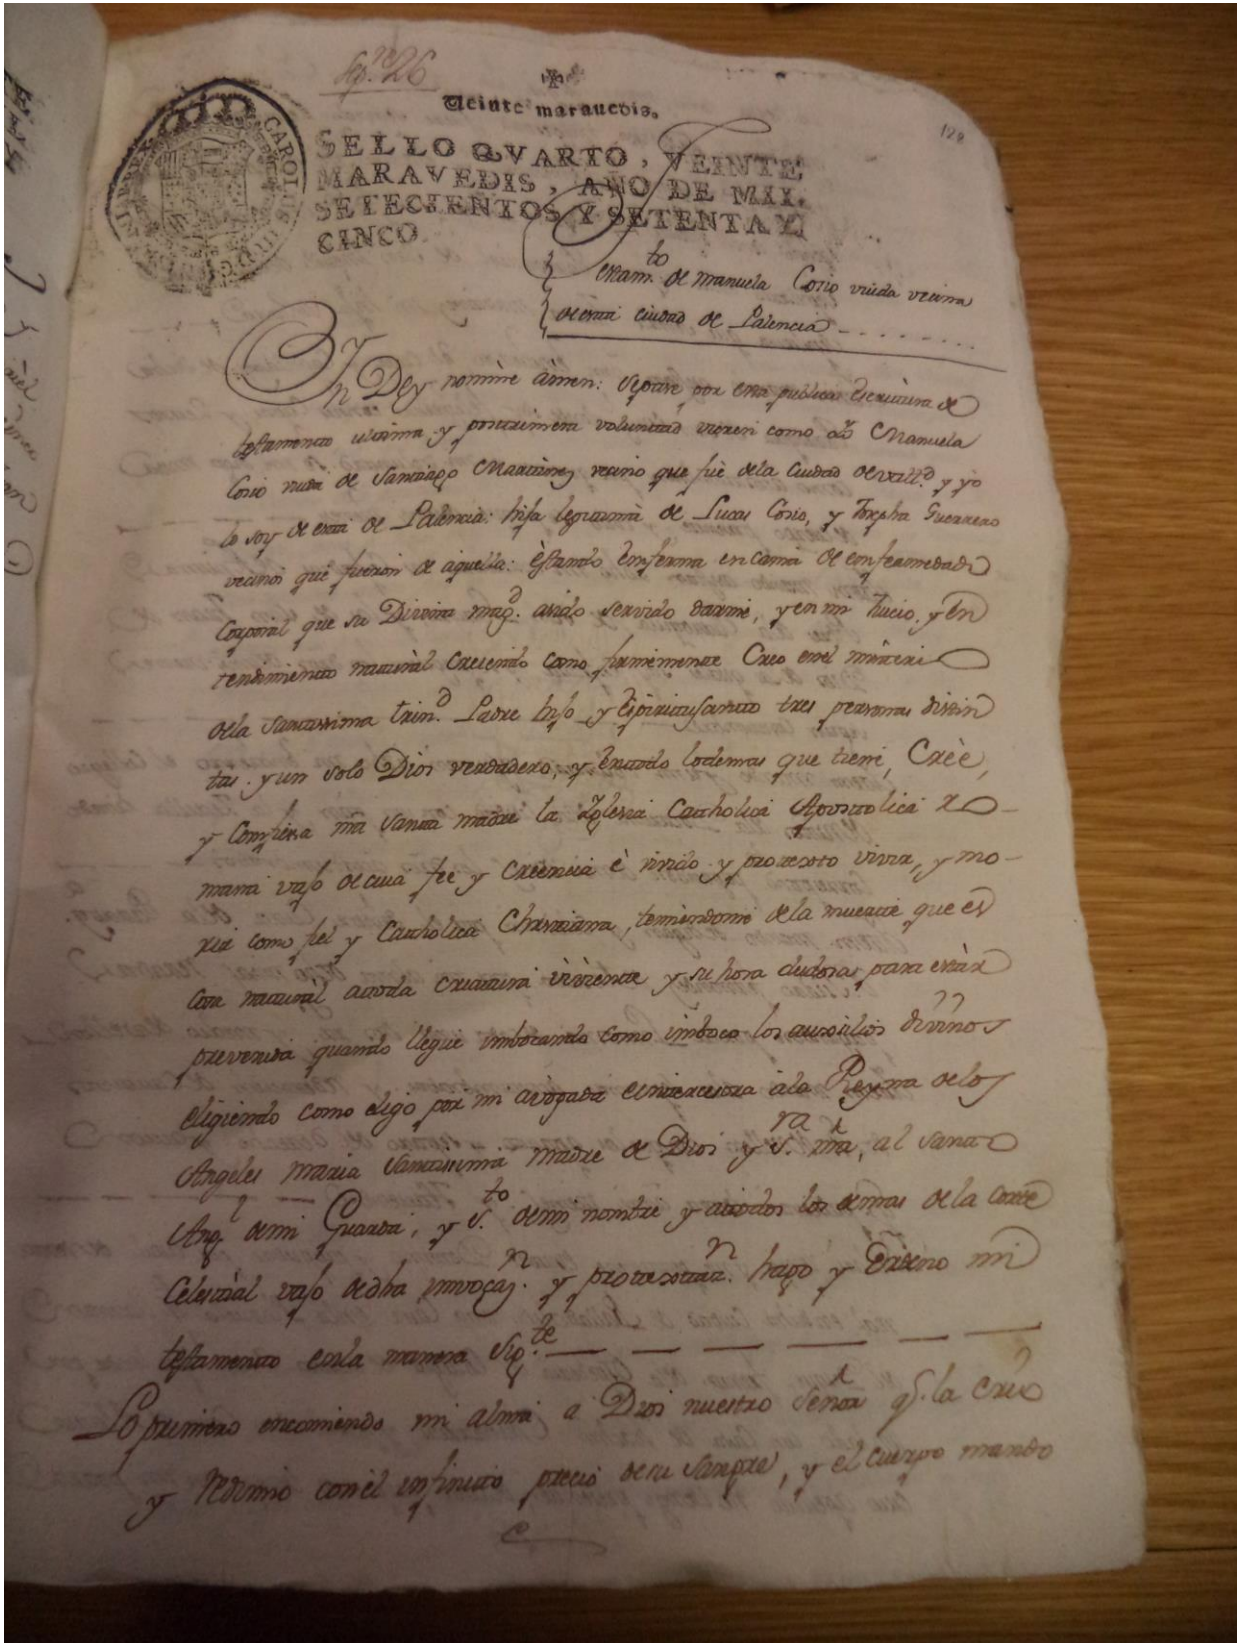 Sep.re 26
Veinte marauedis.
128
SELLO QVARTO, VEINTE
MARAVEDIS, AÑO DE MIL
SETECIENTOS Y SETENTA Y
CINCO
CAROLUS III D G
Testam.to de Manuela Cosio viuda vecina
de esta ciudad de Palencia
In Dey nomine amen: Sepase por esta publica escriptura de
testamento ultima y postrimera voluntad vieren como Yo Manuela
Cosio viuda de Santiago Martinez vecino que fue dela Ciudad de Vall.d y yo
lo soy de esta de Palencia: hija lexitima de Lucas Cosio, y Josepha Guerrero
vecinos que fueron de aquella: estando enferma en cama de enfermedad
corporal que su Divina mag.d asido servido darme, y en mi Juicio, y en
tendimiento natural creiendo como firmemente Creo en el misterio
dela Santissima trin.d Padre hijo y Espiritu Santo tres personas distin
tas y un solo Dios verdadero, y en todo lo demas que tiene, Cree,
y Confiesa nra Santa madre la Yglesia Catholica Apostolica Ro
mana vajo de cuia fee y creencia è vivido y protexto vivir, y mo
rir como fiel y Catholica Christiana, temiendome dela muerte que es
cosa natural atoda criatura viviente y su hora dudosa, para estar
prevenida quando llegue imbocando como imboco los auxilios divinos
eligiendo como elijo por mi avogada e intercesora ala Reyna delos
Angeles maria Santissima madre de Dios y S.ra nra, al Santo
Ang.l de mi Guarda, y S.to demi nombre y atodos los demas de la Corte
Celestial vajo de dha invocaz.n y protextaz.n hago y ordeno mi
testamento en la manera sig.te
Lo primero encomiendo mi alma a Dios nuestro Señor q.e la crio
y redimio con el infinito precio de su Sangre, y el cuerpo mando